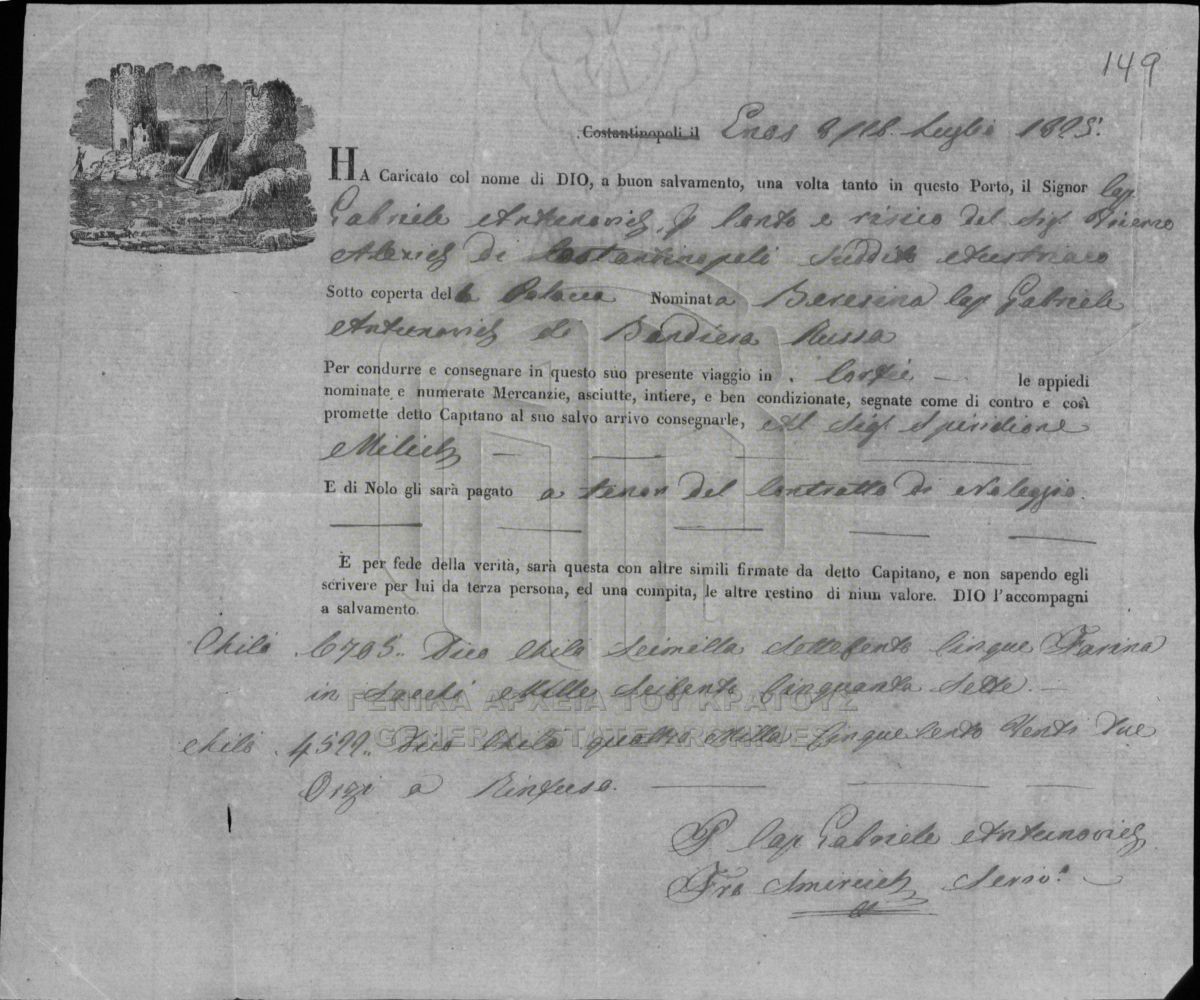 149
Costantinopoli il Enos 8/ Luglio 1825.
HA Caricato col nome di DIO, a buon salvamento, una volta tanto in questo Porto, il Signor Cap
Gabriele Antunovich P Conto e risico del Sig
Alexich di Costantinopoli Suddito Austriaco
Sotto coperta della Polacca Nominata Beresina Cap Gabriele
Antunovich di Bandiera Russa
Per condurre e consegnare in questo suo presente viaggio in Corfù le appiedi
nominate e numerate Mercanzie, asciutte, intiere, e ben condizionate, segnate come di contro e così
promette detto Capitano al suo salvo arrivo consegnarle, Al Sig Spiridione
Milich
E di Nolo gli sarà pagato a tenor del Contratto di Noleggio.
E per fede della verità, sarà questa con altre simili firmate da detto Capitano, e non sapendo egli
scrivere per lui da terza persona, ed una compita, le altre restino di niun valore. DIO l'accompagni
a salvamento.
Chilò 6705.. Dico Chilò Seimilla Settecento Cinque Farina
in Sacchi Mille Seicento Cinquanta Sette.
Chilò 4522.. Dico Chilò quattro Milla Cinque Cento Venti due
Orzi a Rinfusa.
ΓΕΝΙΚΑ ΑΡΧΕΙΑ ΤΟΥ ΚΡΑΤΟΥΣ
GENERAL STATE ARCHIVES
P Cap Gabriele Antunovich
Fra Smircich